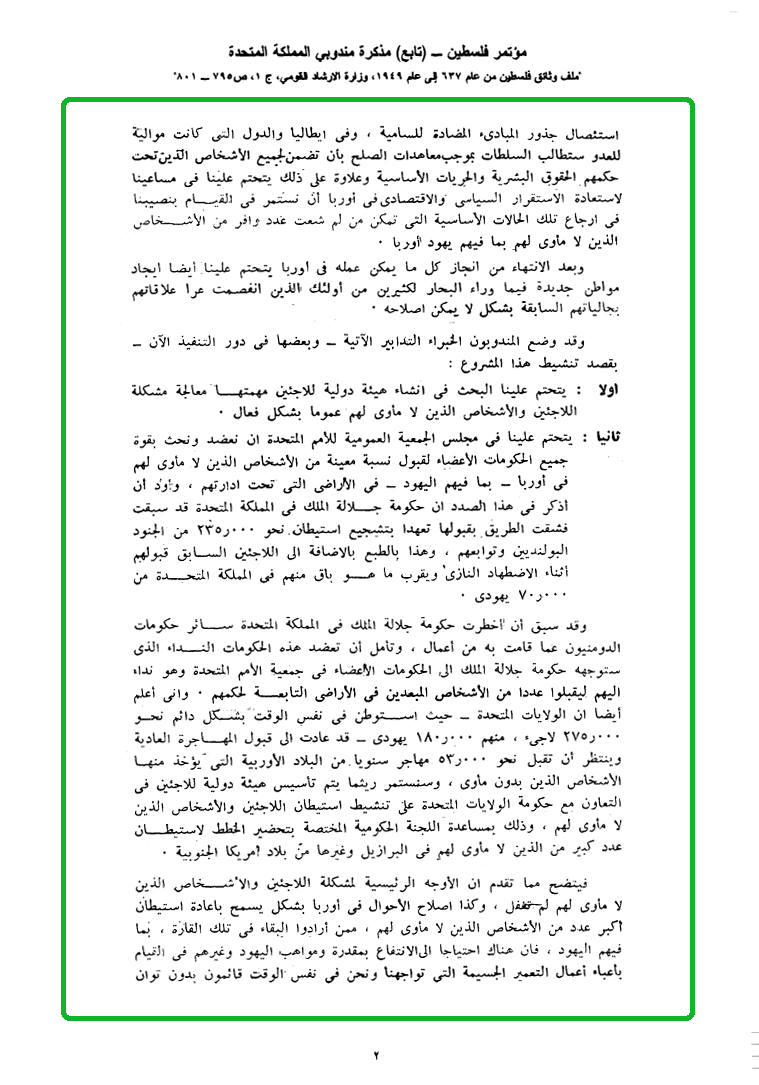 مؤتمر فلسطين ــ (تابع) مذكرة مندوبي المملكة المتحدة
"ملف وثائق فلسطين من عام ٦٣٧ إلى عام ١٩٤٩، وزارة الارشاد القومي، ج ١، ص ٧٩٥ ــ ٨٠١"
استئصال جذور المبادىء المضادة للسامية ، وفى ايطاليا والدول التى كانت موالية
للعدو ستطالب السلطات بموجب معاهدات الصلح بأن تضمن لجميع الأشخاص الذين تحت
حكمهم الحقوق البشرية والحريات الأساسية وعلاوة على ذلك يتحتم علينا فى مساعينا
لاستعادة الاستقرار السياسى والاقتصادى فى أوربا أن نستمر فى القيــام بنصيبنا
فى ارجاع تلك الحالات الأساسية التى تمكن من لم شعث عدد وافر من الأشــخاص
الذين لا مأوى لهم بما فيهم يهود أوربا ٠
وبعد الانتهاء من انجاز كل ما يمكن عمله فى أوربا يتحتم علينا أيضا ايجاد
مواطن جديدة فيما وراء البحار لكثيرين من أولئك الذين انفصمت عرا علاقاتهم
بجالياتهم السابقة بشكل لا يمكن اصلاحه ٠
وقد وضع المندوبون الخبراء التدابير الآتية ــ وبعضها فى دور التنفيذ الآن ــ
بقصد تنشيط هذا المشروع :
اولا : يتحتم علينا البحث فى انشاء هيئة دولية للاجئين مهمتهــا معالجة مشكلة
اللاجئين والأشخاص الذين لا مأوى لهم عموما بشكل فعال ٠
ثانيا : يتحتم علينا فى مجلس الجمعية العمومية للأمم المتحدة ان نعضد ونحث بقوة
جميع الحكومات الأعضاء لقبول نسبة معينة من الأشخاص الذين لا مأوى لهم
فى أوربا ــ بما فيهم اليهود ــ فى الأراضى التى تحت ادارتهم ، وأود أن
أذكر فى هذا الصدد ان حكومة جــلالة الملك فى المملكة المتحدة قد سبقت
فشقت الطريق بقبولها تعهدا بتشجيع استيطان نحو ٢٣٥٫٠٠٠ من الجنود
البولنديين وتوابعهم ، وهذا بالطبع بالاضافة الى اللاجئين الســابق قبولهم
أثناء الاضطهاد النازى ويقرب ما هــو باق منهم فى المملكة المتحــدة من
٧٠٫٠٠٠ يهودى ٠
وقد سبق أن أخطرت حكومة جلالة الملك فى المملكة المتحدة ســائر حكومات
الدومنيون عما قامت به من أعمال ، وتأمل أن تعضد هذه الحكومات النــداء الذى
ستوجهه حكومة جلالة الملك الى الحكومات الأعضاء فى جمعية الأمم المتحدة وهو نداء
اليهم ليقبلوا عددا من الأشخاص المبعدين فى الأراضى التابعــة لحكمهم ٠ وانى أعلم
أيضا ان الولايات المتحدة ــ حيث اســتوطن فى نفس الوقت بشــكل دائم نحــو
٢٧٥٫٠٠٠ لاجىء ، منهم ١٨٠٫٠٠٠ يهودى ــ قد عادت الى قبول المهــاجرة العادية
وينتظر أن تقبل نحو ٥٣٫٠٠٠ مهاجر سنويا من البلاد الأوربية التى يؤخذ منهــا
الأشخاص الذين بدون مأوى ، وسنستمر ريثما يتم تأسيس هيئة دولية للاجئين فى
التعاون مع حكومة الولايات المتحدة على تنشيط استيطان اللاجئين والأشخاص الذين
لا مأوى لهم ، وذلك بمساعدة اللجنة الحكومية المختصة بتحضير الخطط لاستيطــان
عدد كبير من الذين لا مأوى لهم فى البرازيل وغيرها من بلاد أمريكا الجنوبية ٠
فيتضح مما تقدم ان الأوجه الرئيسية لمشكلة اللاجئين والأشــخاص الذين
لا مأوى لهم لم تغفل ، وكذا اصلاح الأحوال فى أوربا بشكل يسمح باعادة استيطان
أكبر عدد من الأشخاص الذين لا مأوى لهم ، ممن أرادوا البقاء فى تلك القارة ، بما
فيهم اليهود ، فان هناك احتياجا الى الانتفاع بمقدرة ومواهب اليهود وغيرهم فى القيام
بأعباء أعمال التعمير الجسيمة التى تواجهنا ونحن فى نفس الوقت قائمون بدون توان
٢